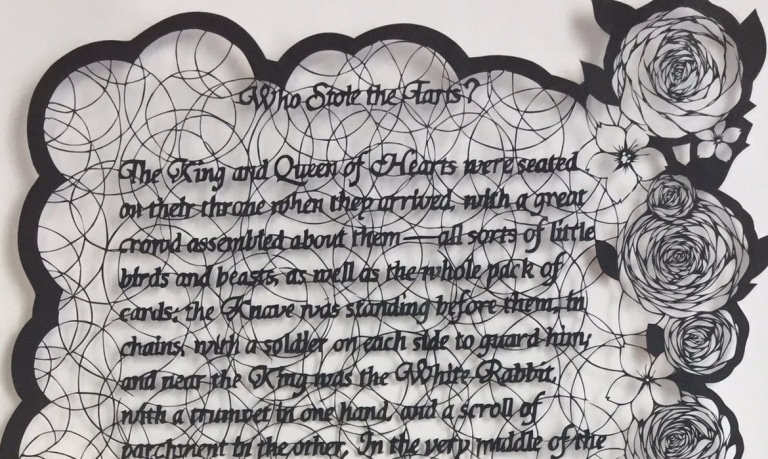 Who Stole the Tarts?
The King and Queen of Hearts were seated
on their throne when they arrived, with a great
crowd assembled about them—all sorts of little
birds and beasts, as well as the whole pack of
cards: the Knave was standing before them, in
chains, with a soldier on each side to guard him;
and near the King was the White Rabbit,
with a trumpet in one hand, and a scroll of
parchment in the other. In the very middle of the